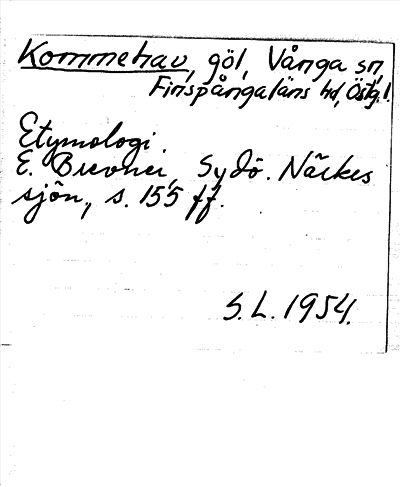 Kommehav, göl, Vånga sn,
Finspångaläns hd, Östg.l.
Etymologi.
E. Brevner, Sydö. Närkes
sjön., s. 155 ff.
S.L. 1954.